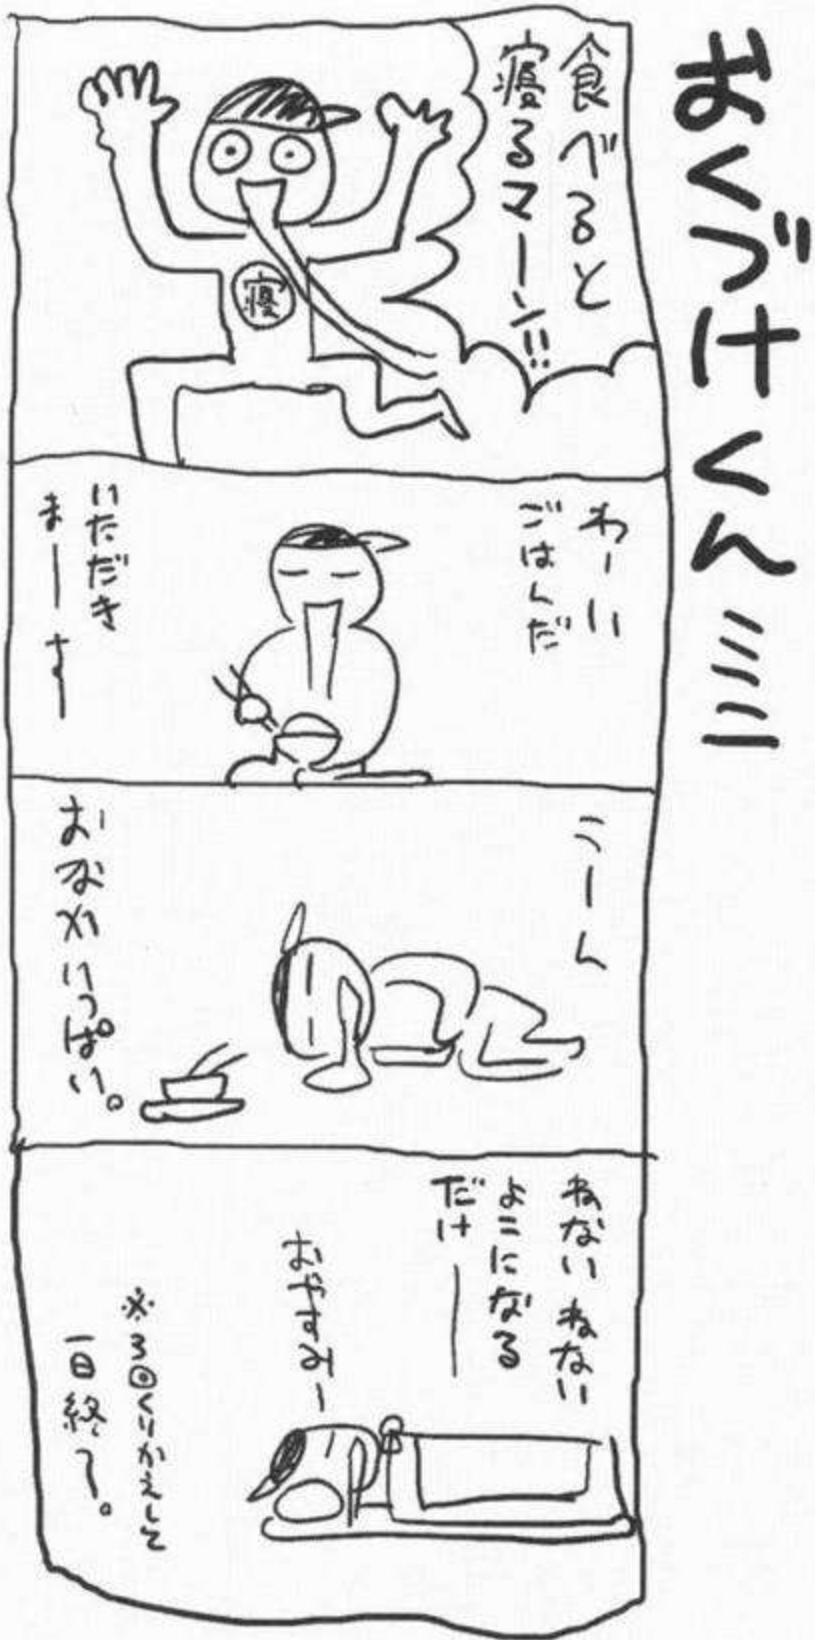 おくづけくんミニ
食べると
寝るマーン!!
寝
わーい
ごはんだ
いただき
まーすー
うーん
おなかいっぱい。
ねないねない
よこになる
だけ――
おやすみー
※3回くりかえして
一日終〜。